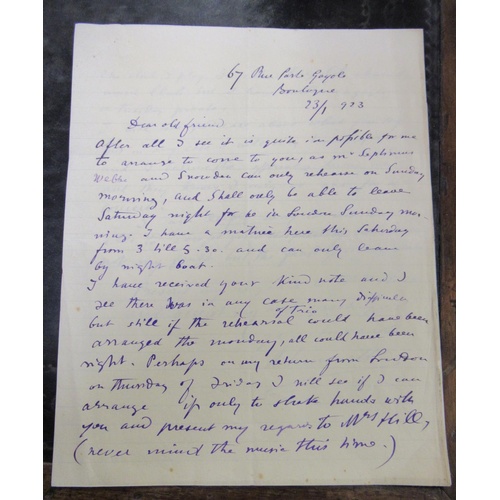 67 Rue Porte Gayole
Boulogne
23/1 923
Dear old friend
After all I see it is quite impossible for me
to arrange to come to you, as Mr Septimus
Webbe and Snowden can only rehearse on Sunday
morning, and shall only be able to leave
Saturday night for be in London Sunday mor-
ning. I have a matinée here this Saturday
from 3 till 5.30. and can only leave
by night boat.
I have received your kind note and I
see there was in any case many difficulties
but still if the rehearsal of Trio could have been
arranged the monday, all could have been
right. Perhaps on my return from London
on thursday of Friday I will see if I can
arrange if only to shake hands with
you and present my regards to Mrs Hill,
(never mind the music this time.)